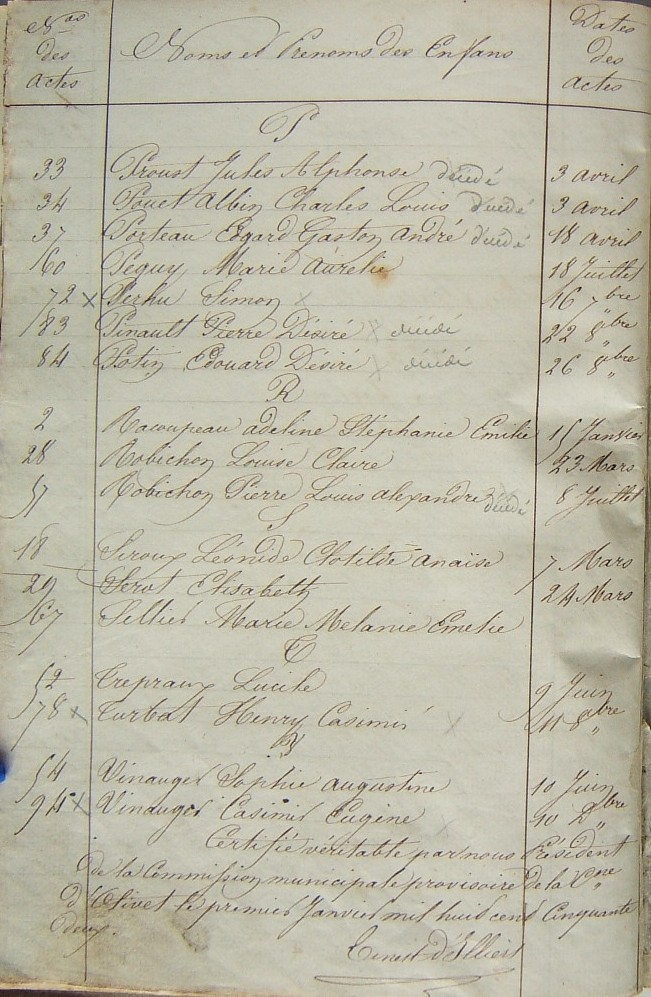 Nos des actes Noms et Prenoms des Enfans Dates des actes
P
33 Proust Jules Alphonse décédé 3 avril
34 Pouet Albin Charles Louis décédé 3 avril
37 Porteau Edgard Gaston André décédé 18 avril
60 Peguy Marie Aurelie 18 Juillet
72 x Perhu Simon x 16 7bre
83 Pinault Pierre Désiré x décédé 22 8bre
84 Potin Edouard Désiré x décédé 26 8bre
R
2 Racoupeau adeline Stéphanie Emilie 15 Janvier
28 Robichon Louise Claire 23 Mars
57 Robichon Pierre Louis alexandre décédé 8 Juillet
S
18 Siroux Léonide Clotilde anaïse 7 Mars
29 Serot Elisabeth 24 Mars
67 Sellier Marie Melanie Emelie
T
52 Trepraux Lucile 9 Juin
78 x Turbat Henry Casimir x 11 8bre
V
54 Vinauger Sophie augustine 10 Juin
94 x Vinauger Casimir Eugène 10 Dbre
Certifié véritable par nous Président
de la Commission municipale provisoire de la Cne
d'Olivet le premier Janvier mil huit cent Cinquante
deux.
Ernest d'Illiers